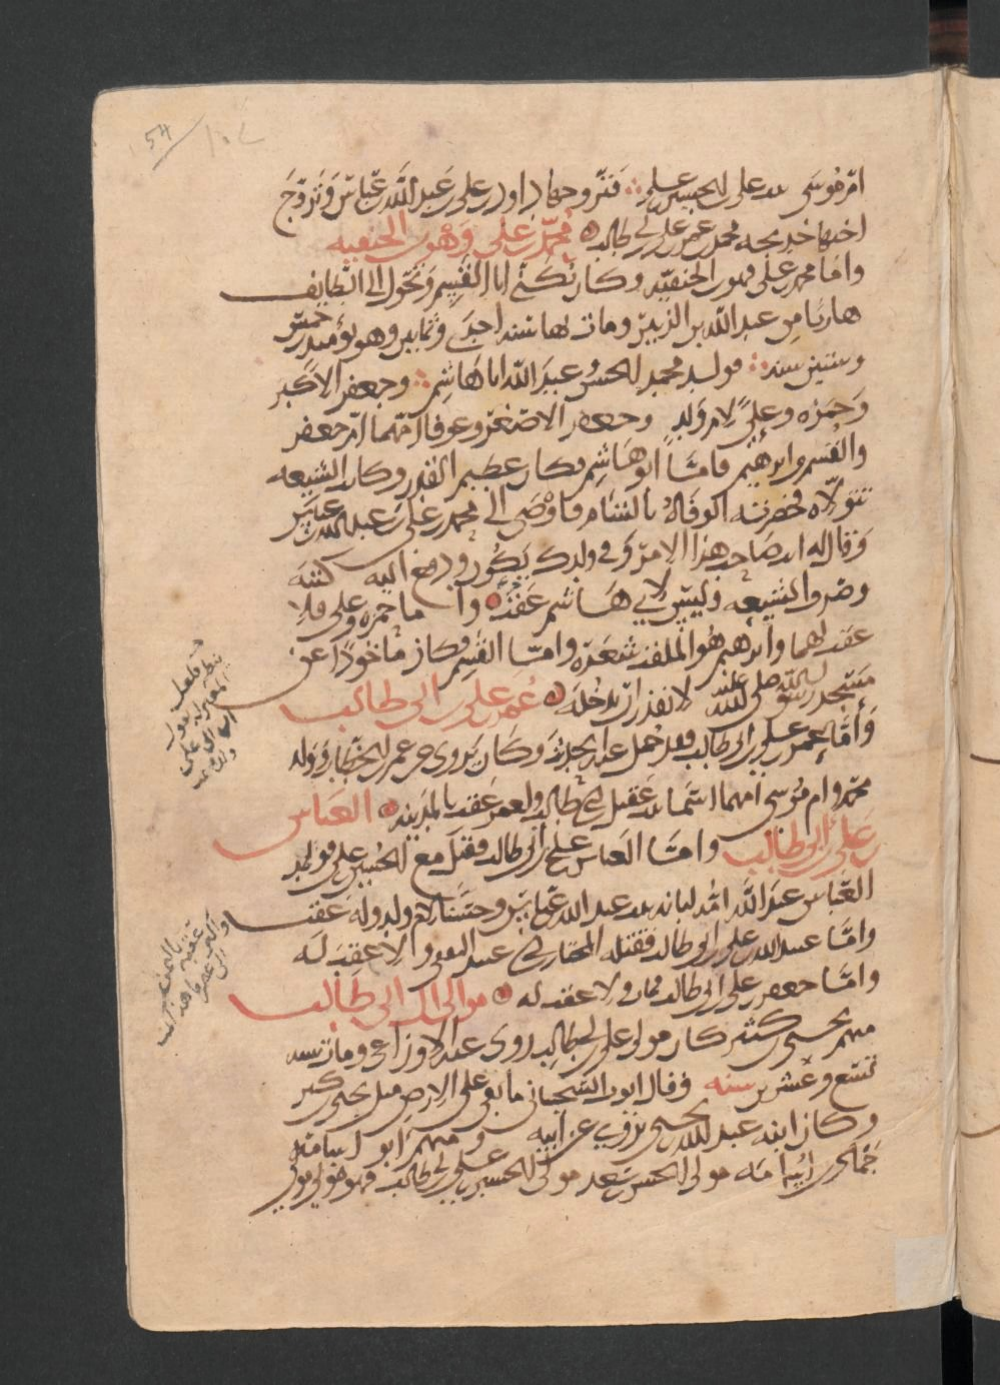 ام موسى بنت على بن الحسين بن على فتزوجها داود بن على بن عبد الله بن عباس وتزوج
اختها خديجه محمد بن عمر بن على بن ابى طالب محمد بن على وهو بن الحنفيه
واما محمد بن على فهو بن الحنفيه وكان يكنى ابا القسم وتحول الى الطايف
هاربا من عبد الله بن الزبير ومات بها سنه احدى وثمانين وهو يوميذ بن خمس
وستين سنه فولد محمد الحسن وعبد الله ابا هاشم وجعفر الاكبر
وحمزه وعلى لام ولد وجعفر الاصغر وعونا امهما ام جعفر
والقسم وابرهيم فاما ابو هاشم فكان عظيم القدر وكان الشيعه
تتولاه فحضرته الوفاه بالشام فاوصى الى محمد بن على بن عبد الله بن عباس
وقال له انت صاحب هذا الامر وفى ولدك يكون ودفع اليه كتبه
وصرف الشيعه وليس لابى هاشم عقب واما حمزه وعلى فلا
عقب لهما وابرهيم هو الملقب شعره واما القسم فكان ماخوذا عن
مسجد رسول الله صلى الله عليه لا يقدر ان يدخله عمر بن على بن ابى طالب
واما عمر بن على بن ابى طالب فقد حمل عنه الحديث وكان يروى عن عمر بن الخطاب وولد
محمدا وام موسى امهما اسما بنت عقيل بن ابى طالب ولعمر عقب بالمدينه العباس
بن على بن ابى طالب واما العباس بن على بن ابى طالب فقتل مع الحسين بن على فولد
العباس عبد الله امه لبابه بنت عبيد الله بن عباس وحسنا لام ولد وله عقب
واما عبيد الله بن على بن ابى طالب فقتله المختار بن ابى عبيد ولا عقب له
واما جعفر بن على بن ابى طالب فمات ولا عقب له موالى ال ابى طالب
منهم يحيى بن كثير كان مولى على بن ابى طالب روى عنه الاوزاعى ومات سنه
تسع وعشرين سنه وقال ايوب السختيانى ما بقى على الارض مثل يحيى بن كثير
وكان ابنه عبد الله بن يحيى يروى عن ابيه ومنهم ابو اسامه
حماد بن اسامه مولى الحسن بن سعد مولى الحسن بن على بن ابى طالب فهو مولى مولى
54